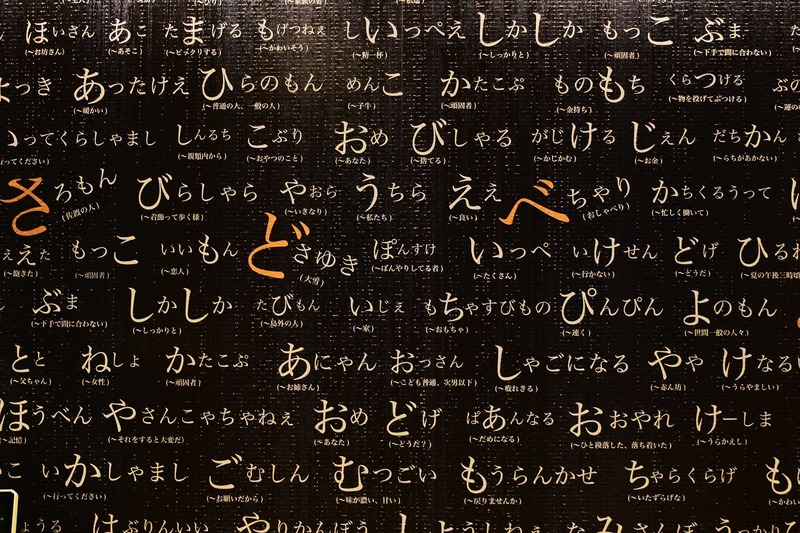 ほいさん あこ たまげる もげつねぇ しいっぺえ しかしか もっこ ぶま
(〜お坊さん) (〜あそこ) (〜ビックリする) (〜かわいそう) (〜精一杯) (〜しっかりと) (〜頑固者) (〜下手で間に合わない)
よっき あったけえ ひらのもん めんこ かたこぶ ものもち くらつける
(〜暖かい) (〜普通の人、一般の人) (〜子牛) (〜頑固者) (〜金持ち) (〜物を投げてぶつける)
いってくらしゃまし しんるち こぶり おめ びしゃる がじける じぇん だちかん
(〜行ってください) (〜親類内から) (〜おやつのこと) (〜あなた) (〜捨てる) (〜かじかむ) (〜お金) (〜らちがあかない)
さろもん びらしゃら やおら うちら ええ べちゃり かちくるうって
(佐渡の人) (〜着飾って歩く様) (〜いきなり) (〜私たち) (〜良い) (おしゃべり) (〜忙しく働いて)
ええた もっこ いいもん どさゆき ぽんすけ いっぺ いけせん どげ
(〜飽きた) (〜頑固者) (〜恋人) (大雪) (〜ぼんやりしてる者) (〜たくさん) (〜行かない) (〜どうだ)
ぶま しかしか たびもん いじぇ もちゃすびもの ぴんぴん よのもん
(〜下手で間に合わない) (〜しっかりと) (〜島外の人) (〜家) (〜おもちゃ) (〜速く) (〜世間一般の人々)
とと ねしょ かたこぶ あにゃん おっさん しゃごになる やや けなる
(〜父ちゃん) (〜女性) (〜頑固者) (〜お姉さん) (〜こども普通、次男以下) (〜疲れきる) (〜赤ん坊) (〜うらやましい)
ほうべん やさんこゃちゃねぇ おめ どげ ぱあんなる おおやれ けーしま
(〜記憶) (〜それをすると大変だ) (〜あなた) (〜どうだ?) (〜だめになる) (〜ひと段落した、落ち着いた) (〜うらかえし)
いかしゃまし ごむしん むつごい もうらんかせ ちゃらくらげ
(〜行ってください) (〜お願いだから) (〜味が濃い、甘い) (〜戻りませんか) (〜いたずらげな)